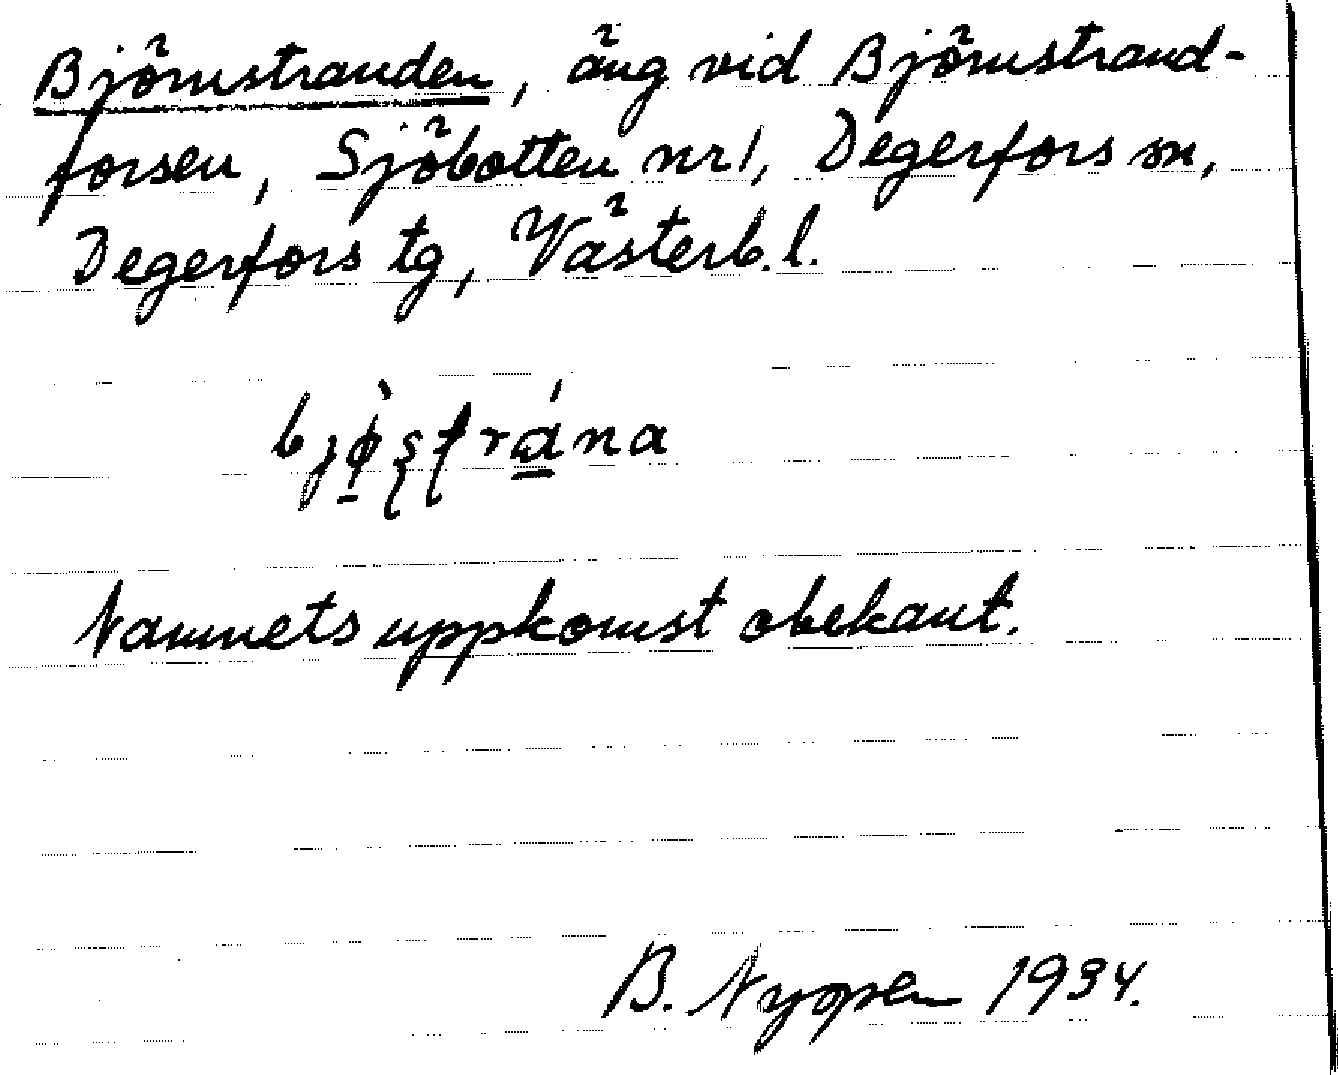 Björnstranden, äng vid Björnstrand-
forsen, Sjöbotten nr 1, Degerfors sn,
Degerfors tg, Västerb. l.
Namnets uppkomst obekant.
B. 1934.